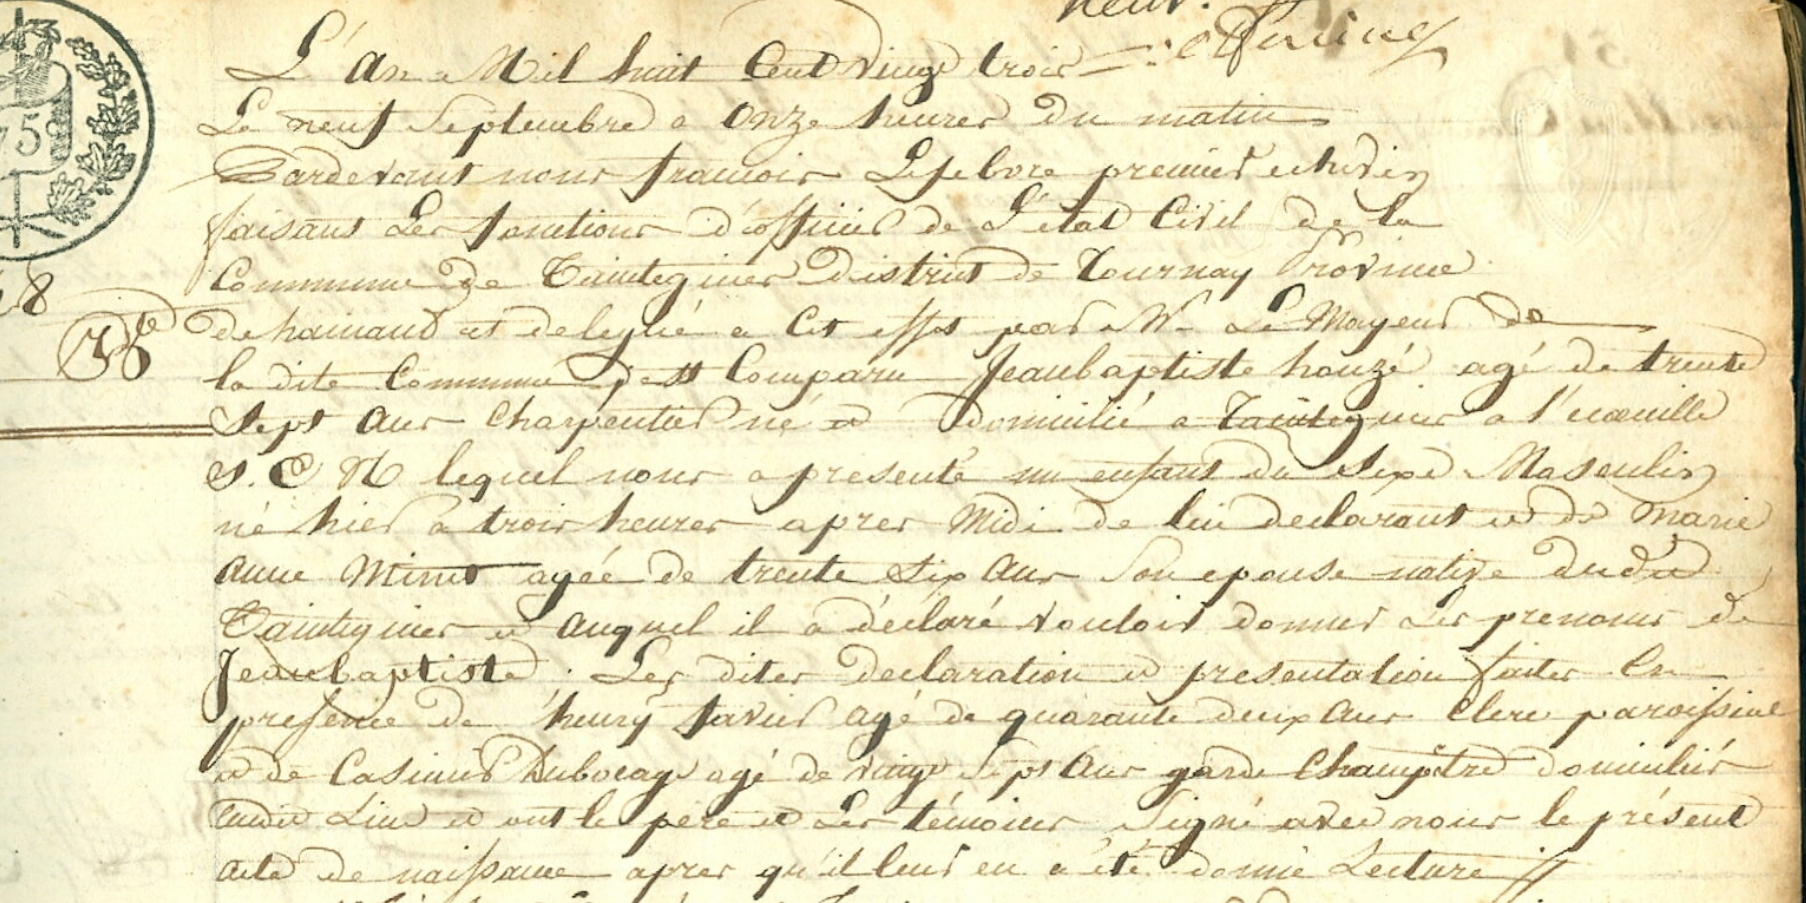 neuf.
L'An Mil huit Cent vingt trois
Le neuf Septembre a Onze heures Du matin
Pardevant nous francois Lefebvre premier echevin
faisant Les fonctions d'officier de L'état Civil de la
Commune de Taintegnies District de Tournay Province
de hainaut et delegué a Cet effet par Mr Le Mayeur de
la dite Commune est Comparu Jeanbaptiste houzé agé de trente
Sept Ans Charpentier né et Domicilié a Taintegnies a l'
S. C N lequel nous a presenté un enfant du Sexe Masculin
né hier a trois heures apres Midi de lui declarant et de Marie
Anne Minet agée de trente Six Ans Son epouse native dudit
Taintegnies et Auquel il a déclaré vouloir donner Les prenoms de
Jeanbaptiste. Les dites declaration et presentation faites En
presence de henry favier agé de quarante deux Ans Clerc paroissial
et de Casimir Dubocage agé de vingt Sept Ans garde Champêtre domiciliés
audit Lieu et ont le pere et Les témoins Signé avec nous le présent
acte de naissance apres qu'il leur en a été donné Lecture
75